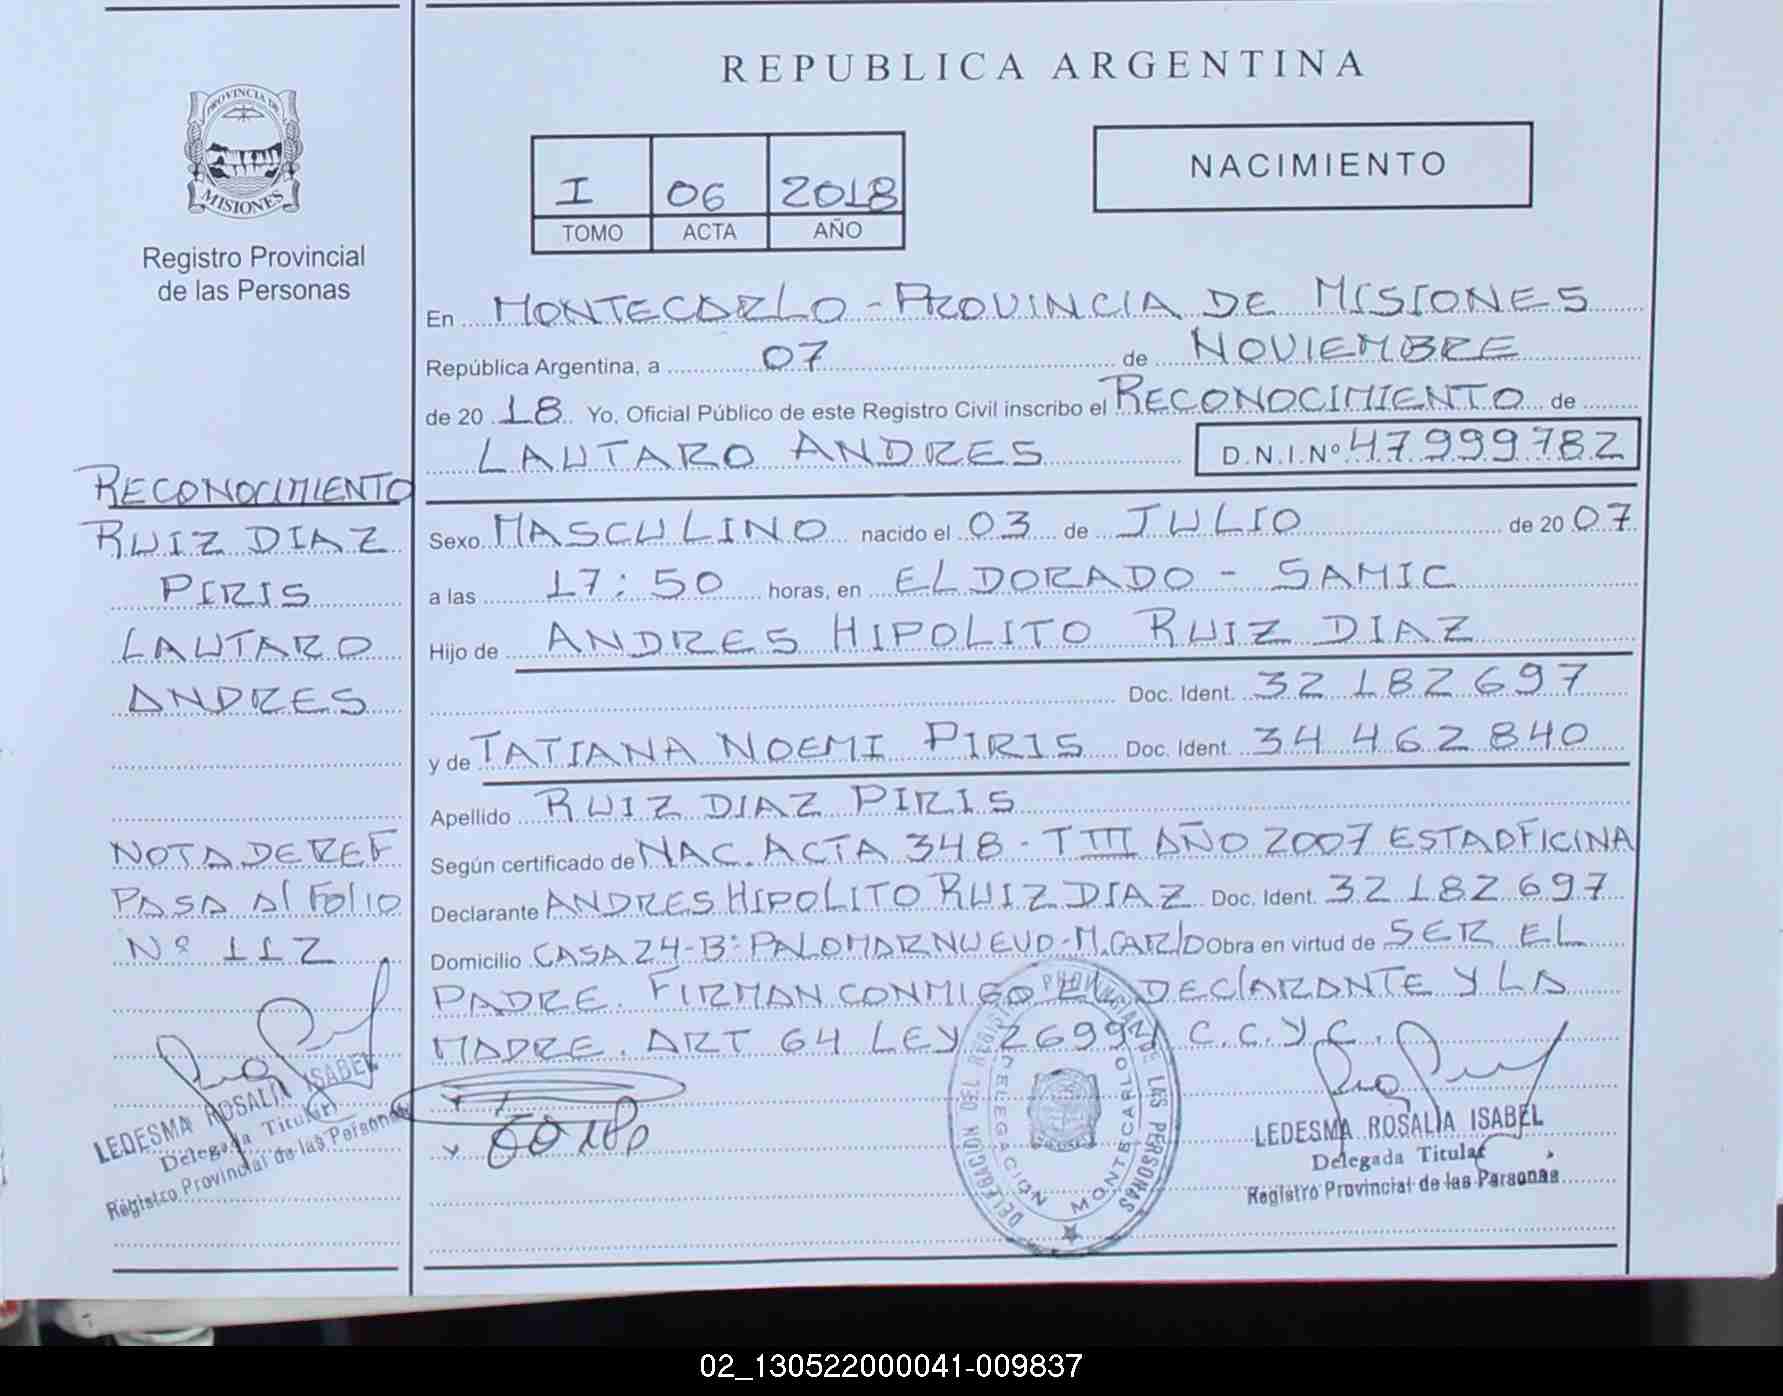 REPUBLICA ARGENTINA
PROVINCIA DE
MISIONES
Registro Provincial
de las Personas
I 06 2018
TOMO ACTA AÑO
NACIMIENTO
En MONTECARLO - PROVINCIA DE MISIONES
República Argentina, a 07 de NOVIEMBRE
de 20 18 Yo, Oficial Público de este Registro Civil inscribo el RECONOCIMIENTO de
LAUTARO ANDRES D.N.I.Nº 47999782
Sexo MASCULINO nacido el 03 de JULIO de 2007
a las 17:50 horas, en ELDORADO - SAMIC
Hijo de ANDRES HIPOLITO RUIZ DIAZ
Doc. Ident. 32 182 697
y de TATIANA NOEMI PIRIS Doc. Ident. 34 462 840
Apellido RUIZ DIAZ PIRIS
Según certificado de NAC. ACTA 348 - T III AÑO 2007 ESTAOFICINA
Declarante ANDRES HIPOLITO RUIZ DIAZ Doc. Ident. 32 182 697
Domicilio CASA 24-Bº PALOMAR NUEVO-M.CARLO Obra en virtud de SER EL
PADRE. FIRMAN CONMIGO EL DECLARANTE Y LA
MADRE. ART 64 LEY 26994 C.C.Y.C.
RECONOCIMIENTO
RUIZ DIAZ
PIRIS
LAUTARO
ANDRES
NOTA DE REF
PASA Al FOLIO
Nº 112
LEDESMA ROSALIA ISABEL
Delegada Titular
Registro Provincial de las Personas
DELEGACION DEL REGISTRO PROVINCIAL DE LAS PERSONAS
DELEGACION MONTECARLO
LEDESMA ROSALIA ISABEL
Delegada Titular
Registro Provincial de las Personas
02_130522000041-009837